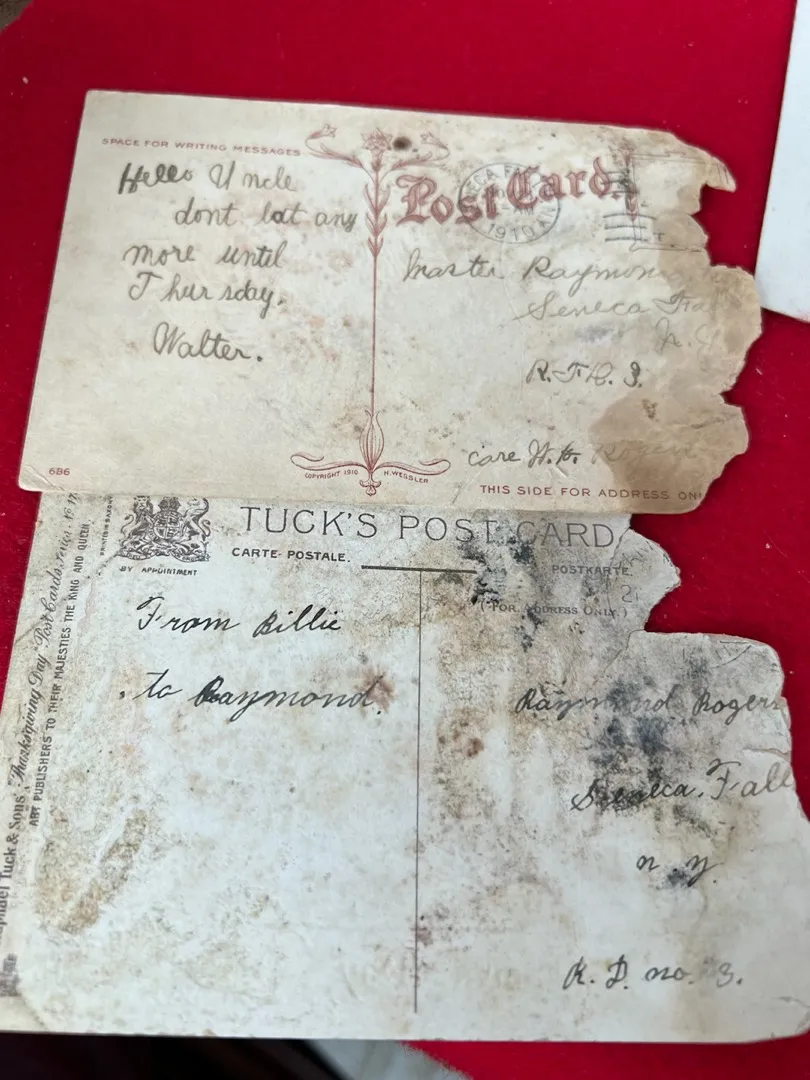 SPACE FOR WRITING MESSAGES
Post Card.
1910
Hello Uncle
dont eat any
more until
Thursday.
Walter.
Master Raymond
Seneca Fa
N.Y
R.F.D. 3.
care W.H. Rogers
6B6
COPYRIGHT 1910 H. WESSLER
THIS SIDE FOR ADDRESS ON
TUCK'S POST CARD
CARTE POSTALE.
POSTKARTE.
(FOR ADDRESS ONLY.)
BY APPOINTMENT
PRINTED IN SAXONY
From Billie
to Raymond.
Raymond Rogers
Seneca. Fall
n y.
R. D. no. 3.
phael Tuck & Sons' "Thanksgiving Day" Post Cards, Series, No 17
ART PUBLISHERS TO THEIR MAJESTIES THE KING AND QUEEN